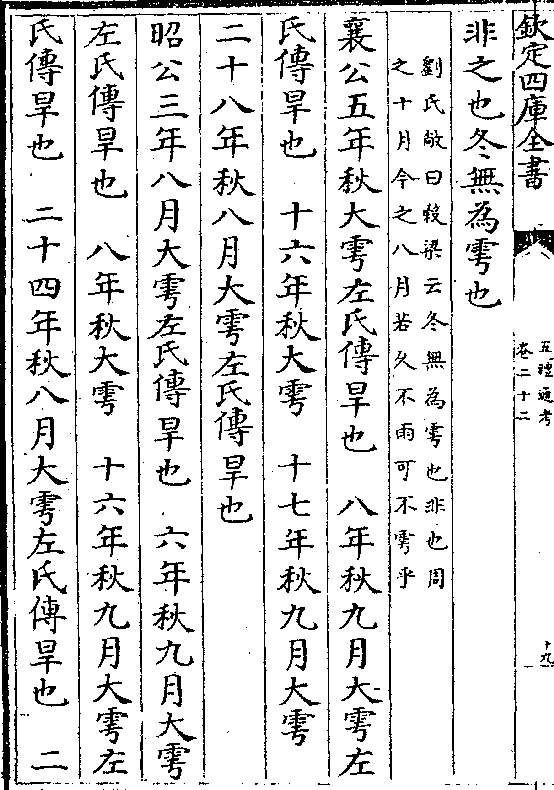 欽定四庫全書
五禮通考
卷二十二
十九
非之也冬無為雩也
劉氏敞曰穀梁云冬無為雩也非也周
之十月今之八月若久不雨可不雩乎
襄公五年秋大雩左氏傳旱也　八年秋九月大雩左
氏傳旱也　十六年秋大雩　十七年秋九月大雩
二十八年秋八月大雩左氏傳旱也
昭公三年八月大雩左氏傳旱也　六年秋九月大雩
左氏傳旱也　八年秋大雩　十六年秋九月大雩左
氏傳旱也　二十四年秋八月大雩左氏傳旱也　二